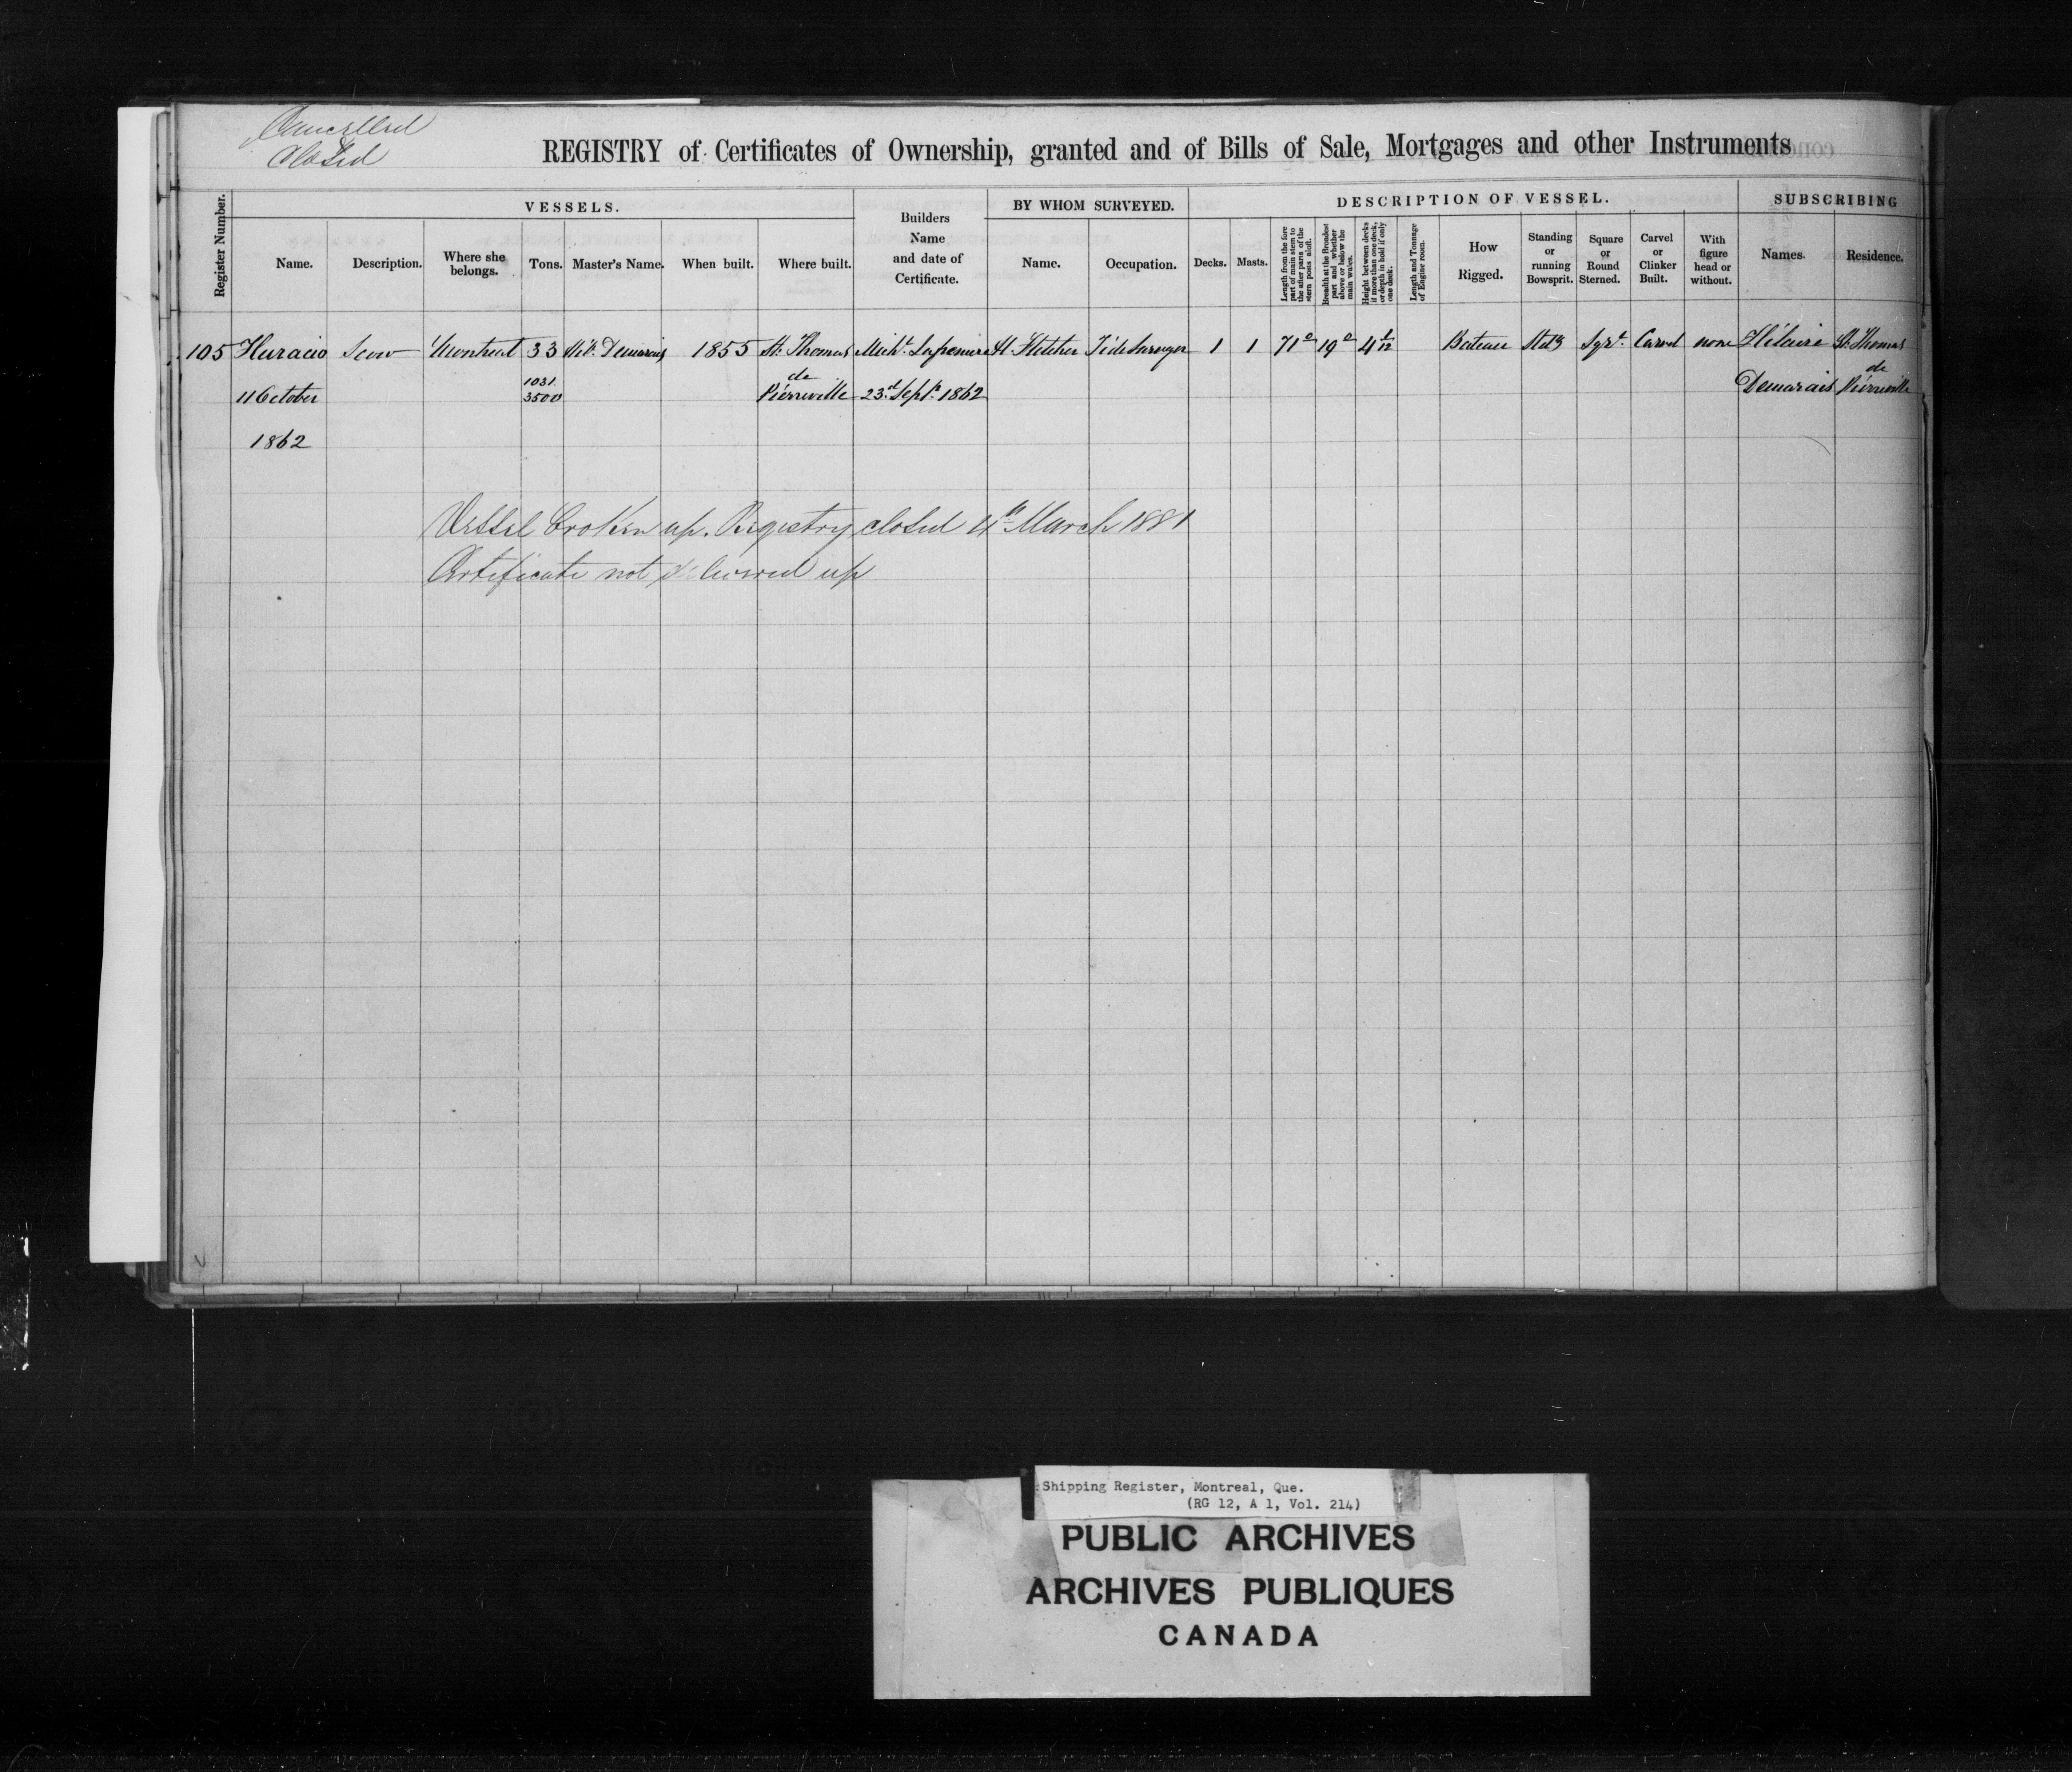 Cancelled
Closed
REGISTRY of Certificates of Ownership, granted and of Bills of Sale, Mortgages and other Instruments
Register Number.
VESSELS.
Name.
Description.
Where she belongs.
Tons.
Master's Name.
When built.
Where built.
Builders Name and date of Certificate.
BY WHOM SURVEYED.
Name.
Occupation.
DESCRIPTION OF VESSEL.
Decks.
Masts.
Length from the fore part of main stem to the after parts of the stern posts aloft.
Breadth at the Broadest part and whether above or below the main wales.
Height between decks if more than one deck, or depth in hold if only one deck.
Length and Tonnage of Engine room.
How Rigged.
Standing or running Bowsprit.
Square or Round Sterned.
Carvel or Clinker Built.
With figure head or without.
SUBSCRIBING
Names.
Residence.
105 Huracio Scow Montreal 33 Hil. Demarais 1855 St. Thomas H. Fletcher 1 1 71 19 4 Bateau Carvel none Hilaire St. Thomas
11 October 1031 3500 de Pierreville 23d Sept. 1862 Demarais de Pierreville
1862
Vessel broken up. Registry closed 4th March 1881
Certificate not delivered up
Shipping Register, Montreal, Que.
(RG 12, A 1, Vol. 214)
PUBLIC ARCHIVES
ARCHIVES PUBLIQUES
CANADA